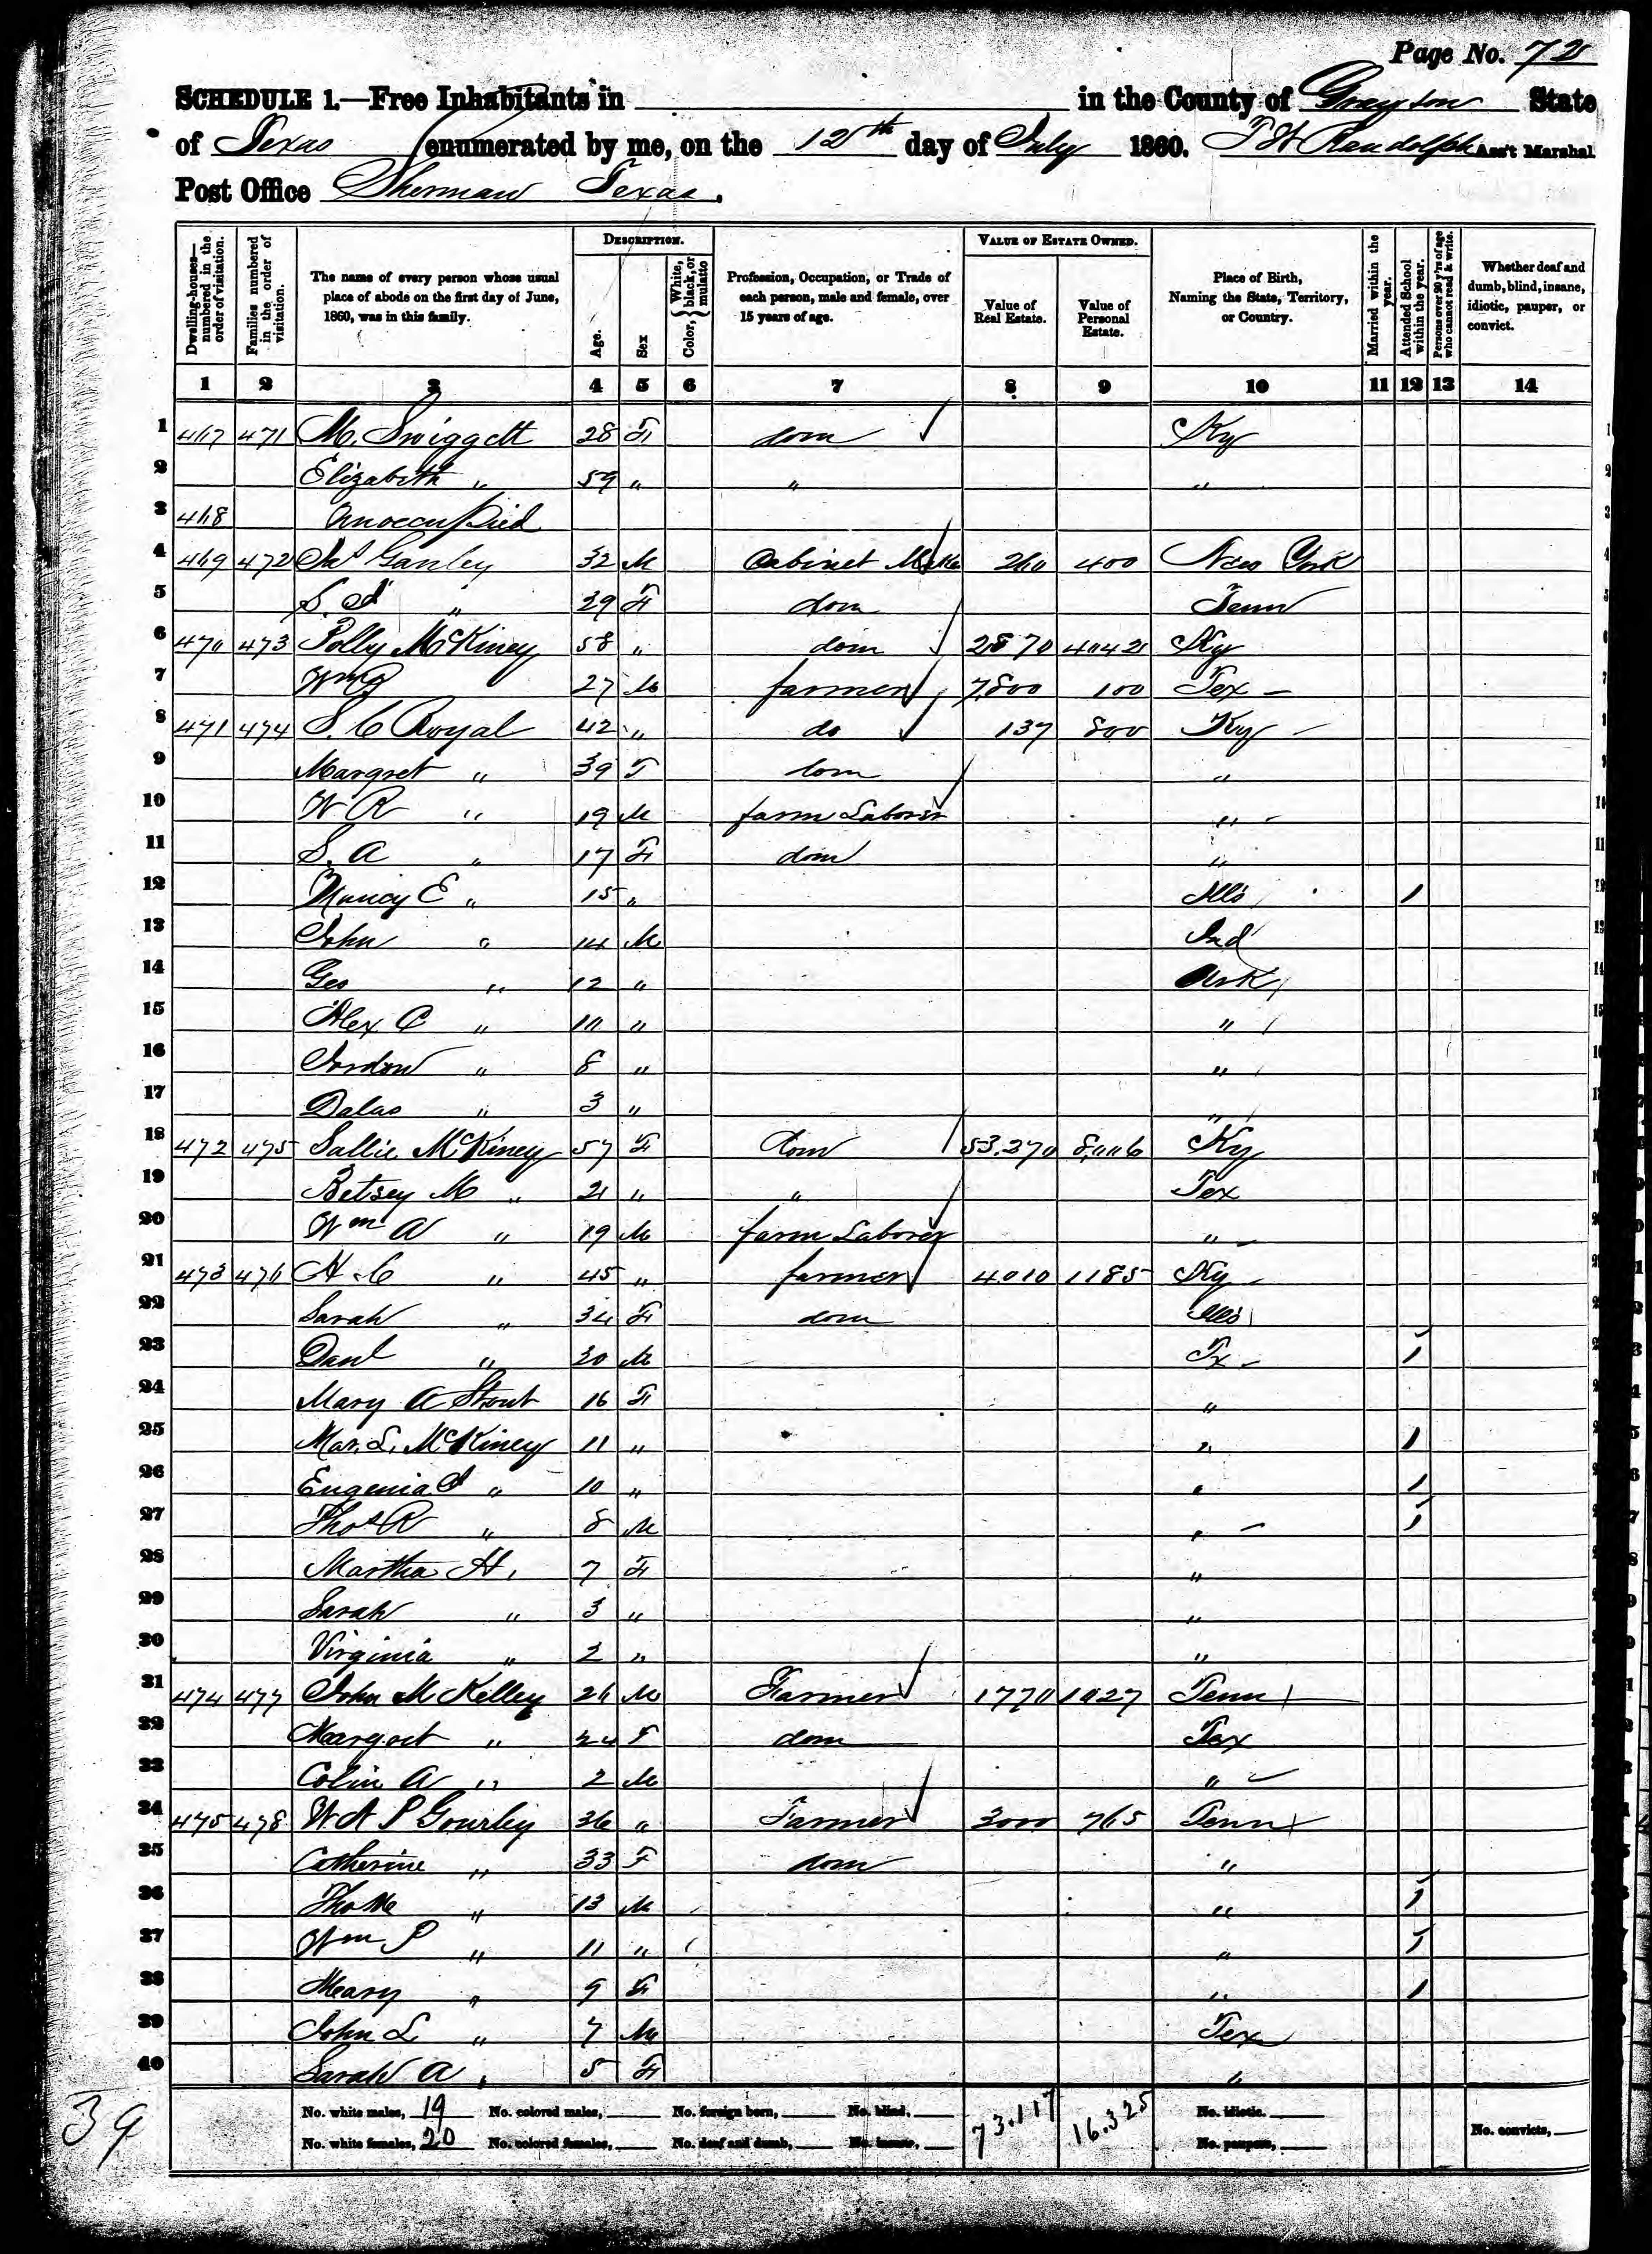 Page No. 72
SCHEDULE 1.—Free Inhabitants in in the County of Grayson State
of Texas enumerated by me, on the 12th day of July 1860. Randolph Ass't Marshal
Post Office Sherman Texas.
Dwelling-houses—numbered in the order of visitation.
Families numbered in the order of visitation.
The name of every person whose usual place of abode on the first day of June, 1860, was in this family.
DESCRIPTION.
Age.
Sex
Color, { White, black, or mulatto
Profession, Occupation, or Trade of each person, male and female, over 15 years of age.
VALUE OF ESTATE OWNED.
Value of Real Estate.
Value of Personal Estate.
Place of Birth, Naming the State, Territory, or Country.
Married within the year.
Attended School within the year.
Persons over 20 y'rs of age who cannot read & write.
Whether deaf and dumb, blind, insane, idiotic, pauper, or convict.
1 2 3 4 5 6 7 8 9 10 11 12 13 14
1 467 471 M. Swiggett 28 F dom Ky
2 Elizabeth " 59 " " "
3 468 Unoccupied
4 469 472 Ganley 32 M Cabinet 260 400 New York
5 " 29 F dom Tenn
6 470 473 Polly McKiney 58 " dom Ky
7 Wm 27 M farmer 7,800 100 Tex
8 471 474 S. C Royal 42 " do 137 800 Ky
9 Margret " 39 F dom "
10 W R " 19 M farm Laborer "
11 S. A " 17 F dom "
12 Nancy E " 15 " 1
13 John " 14 M Ind
14 Geo " 12 " Ark
15 Alex C " 10 " "
16 Jordon " 8 " "
17 Dalas " 3 " "
18 472 475 Sallie McKiney 57 F dom 53,270 8,006 Ky
19 Betsey M " 21 " " Tex
20 Wm A " 19 M farm Laborer "
21 473 476 H. C " 45 " farmer 4010 1185 Ky
22 Sarah " 34 F dom
23 Danl " 20 M Tx 1
24 Mary A Strout 16 F "
25 Mar. L. McKiney 11 " " 1
26 Eugenia " 10 " " 1
27 Thos R " 8 M " 1
28 Martha H. 7 F "
29 Sarah " 3 " "
30 Virginia " 2 " "
31 474 477 John M Kelley 26 M Farmer 1770 1027 Tenn
32 Margret " 24 F dom Tex
33 Colin A " 2 M "
34 475 478 W A P Gourley 36 " Farmer 3000 765 Tenn
35 Catherine " 33 F dom "
36 Tho " 13 M " 1
37 Wm P " 11 " " 1
38 Meary " 9 F " 1
39 John L " 7 M Tex
40 Sarah A " 5 F "
No. white males, 19 No. colored males, No. foreign born, No. blind, 73.117 16.325 No. idiotic.
No. white females, 20 No. colored females, No. deaf and dumb, No. insane, No. paupers, No. convicts,
39